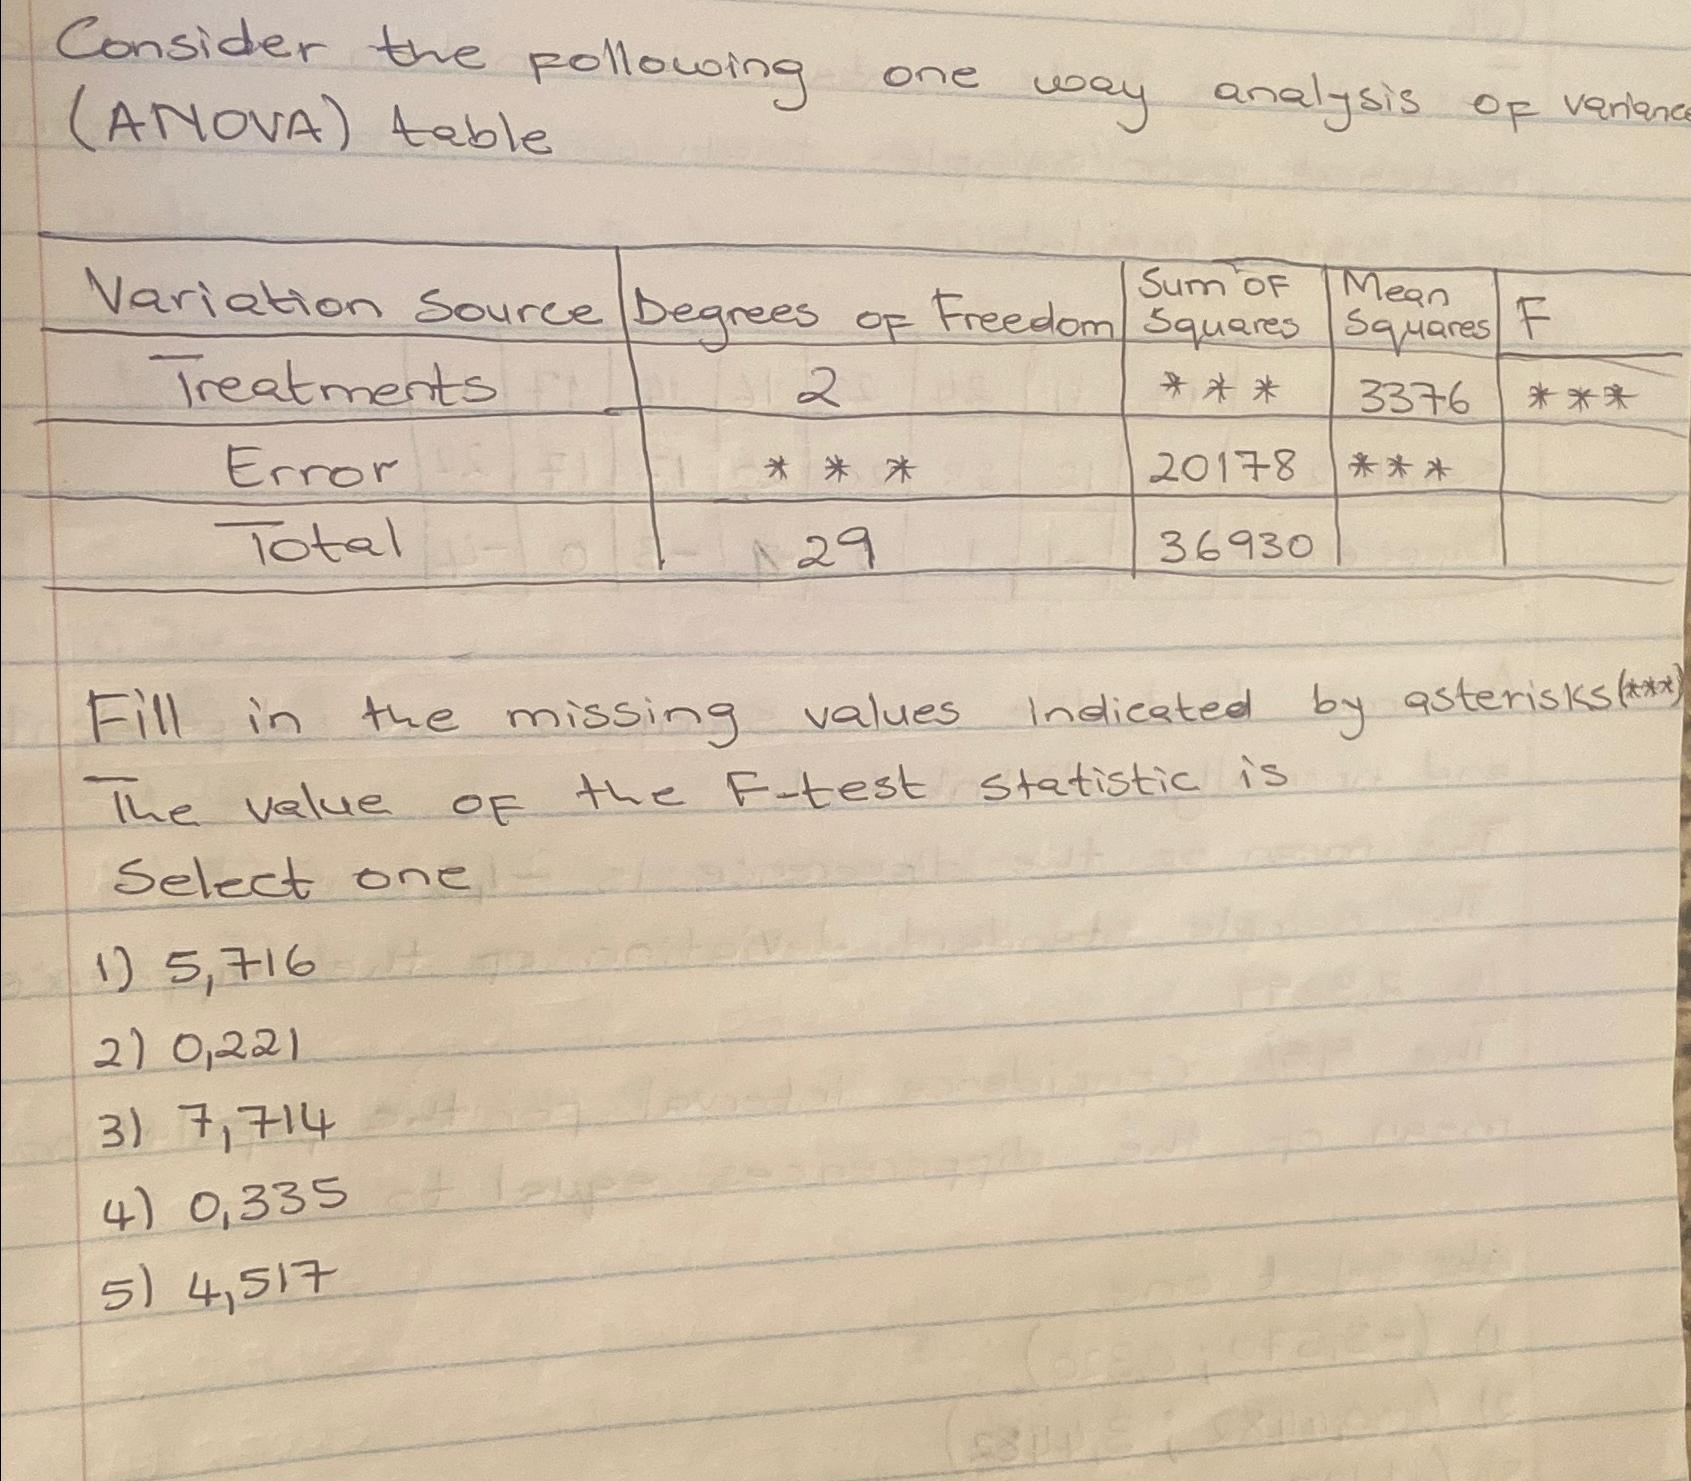 Consider the following one way analysis of variance
(ANOVA) table
Variation Source Degrees of Freedom Sum of Squares Mean Squares F
Treatments 2 *** 3376 ***
Error *** 20178 ***
Total 29 36930
Fill in the missing values indicated by asterisks (***)
The value of the F-test statistic is
Select one
1) 5,716
2) 0,221
3) 7,714
4) 0,335
5) 4,517